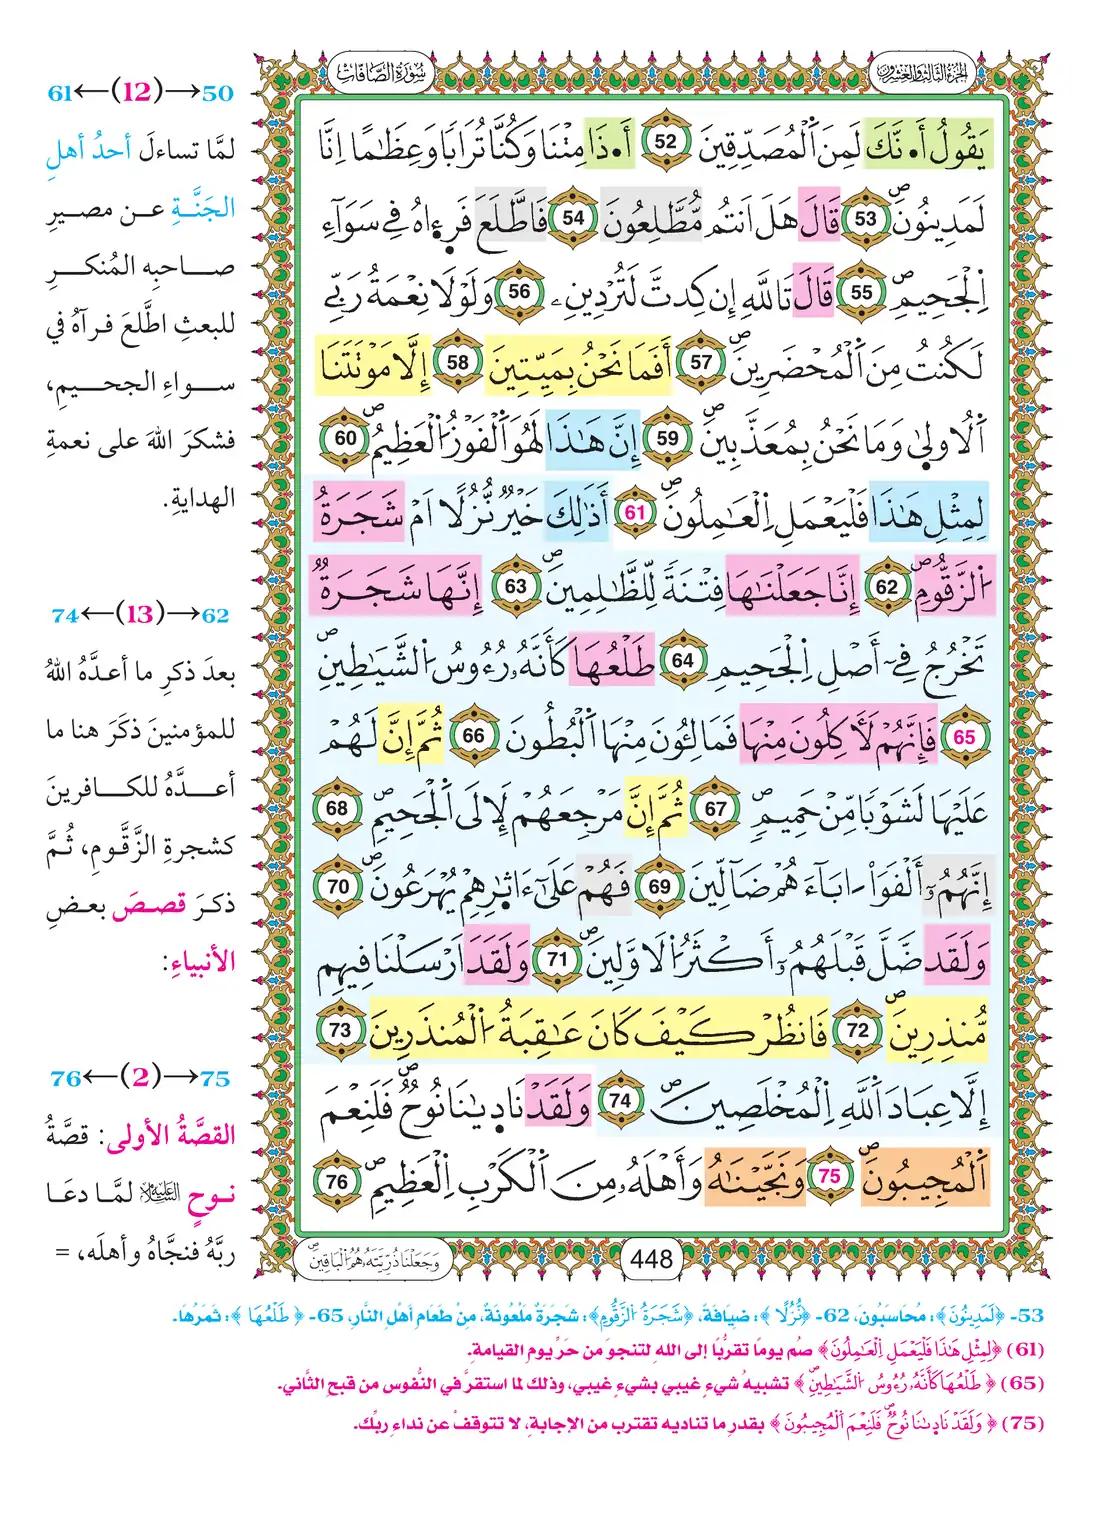 سُورَةُ الصَّافَّاتِ
الجزء الثالث والعشرون
يَقُولُ أَ•نَّكَ لَمِنَ اَ۬لْمُصَدِّقِينَ 52 أَ•ذَا مِتْنَا وَكُنَّا تُرَاباٗ وَعِظَٰماً اِنَّا
لَمَدِينُونَۖ 53 قَالَ هَلَ اَنتُم مُّطَّلِعُونَ 54 فَاطَّلَعَ فَرِءٰاهُ فِے سَوَآءِ
اِ۬لْجَحِيمِۖ 55 قَالَ تَاللَّهِ إِن كِدتَّ لَتُرْدِينِۦ 56 وَلَوْلَا نِعْمَةُ رَبِّے
لَكُنتُ مِنَ اَ۬لْمُحْضَرِينَۖ 57 أَفَمَا نَحْنُ بِمَيِّتِينَ 58 إِلَّا مَوْتَتَنَا
اَ۬لُاول۪ىٰ وَمَا نَحْنُ بِمُعَذَّبِينَۖ 59 إِنَّ هَٰذَا لَهُوَ اَ۬لْفَوْزُ اُ۬لْعَظِيمُۖ 60
لِمِثْلِ هَٰذَا فَلْيَعْمَلِ اِ۬لْعَٰمِلُونَۖ 61 أَذَٰلِكَ خَيْرٞ نُّزُلاً اَمْ شَجَرَةُ
اُ۬لزَّقُّومِۖ 62 إِنَّا جَعَلْنَٰهَا فِتْنَةٗ لِّلظَّٰلِمِينَۖ 63 إِنَّهَا شَجَرَةٞ
تَخْرُجُ فِےٓ أَصْلِ اِ۬لْجَحِيمِ 64 طَلْعُهَا كَأَنَّهُۥ رُءُوسُ اُ۬لشَّيَٰطِينِۖ
65 فَإِنَّهُمْ لَأٓكِلُونَ مِنْهَا فَمَالِـُٔونَ مِنْهَا اَ۬لْبُطُونَ 66 ثُمَّ إِنَّ لَهُمْ
عَلَيْهَا لَشَوْباٗ مِّنْ حَمِيمٖۖ 67 ثُمَّ إِنَّ مَرْجِعَهُمْ لَإِلَى اَ۬لْجَحِيمِۖ 68
إِنَّهُمُۥٓ أَلْفَوَاْ اٰبَآءَهُمْ ضَآلِّينَ 69 فَهُمْ عَلَىٰٓ ءَاثٰ۪رِهِمْ يُهْرَعُونَۖ 70
وَلَقَد ضَّلَّ قَبْلَهُمُۥٓ أَكْثَرُ اُ۬لَاوَّلِينَۖ 71 وَلَقَدَ اَرْسَلْنَا فِيهِم
مُّنذِرِينَۖ 72 فَانظُرْ كَيْفَ كَانَ عَٰقِبَةُ اُ۬لْمُنذَرِينَ 73
إِلَّا عِبَادَ اَ۬للَّهِ اِ۬لْمُخْلَصِينَۖ 74 وَلَقَدْ نَاد۪يٰنَا نُوحٞۖ فَلَنِعْمَ
اَ۬لْمُجِيبُونَۖ 75 وَنَجَّيْنَٰهُ وَأَهْلَهُۥ مِنَ اَ۬لْكَرْبِ اِ۬لْعَظِيمِۖ 76
448
وَجَعَلْنَا ذُرِّيَّتَهُۥ هُمُ اُ۬لْبَاقِينَۖ
61←(12)→50
لمَّا تساءلَ أحدُ أهلِ
الجَنَّةِ عن مصيرِ
صاحبِه المُنكرِ
للبعثِ اطَّلعَ فرآهُ في
سواءِ الجحيمِ،
فشكرَ اللهَ على نعمةِ
الهدايةِ.
74←(13)→62
بعدَ ذكرِ ما أعدَّهُ اللهُ
للمؤمنينَ ذكَرَ هنا ما
أعدَّهُ للكافرينَ
كشجرةِ الزَّقُّومِ، ثُمَّ
ذكرَ قصصَ بعضِ
الأنبياءِ:
76←(2)→75
القصَّةُ الأولى: قصَّةُ
نوحٍ عليه السلام لمَّا دعَا
ربَّهُ فنجَّاهُ وأهلَه، =
53- ﴿لَمَدِينُونَ﴾: مُحَاسَبُونَ، 62- ﴿نُّزُلًا﴾: ضِيَافَةً، ﴿شَجَرَةُ اُ۬لزَّقُّومِ﴾: شَجَرَةٌ مَلْعُونَةٌ، مِنْ طَعَامِ أَهْلِ النَّارِ، 65- ﴿طَلْعُهَا﴾: ثَمَرُهَا.
(61) ﴿لِمِثْلِ هَٰذَا فَلْيَعْمَلِ اِ۬لْعَٰمِلُونَ﴾ صُم يومًا تقرُّبًا إلى اللهِ لتنجوَ من حَرِّ يومِ القيامةِ.
(65) ﴿طَلْعُهَا كَأَنَّهُۥ رُءُوسُ اُ۬لشَّيَٰطِينِۖ﴾ تشبيهُ شيءٍ غيبي بشيءٍ غيبي، وذلك لما استقرَّ في النُّفوس من قبحِ الثَّاني.
(75) ﴿وَلَقَدْ نَاد۪يٰنَا نُوحٞۖ فَلَنِعْمَ اَ۬لْمُجِيبُونَ﴾ بقدرِ ما تناديه تقترب من الإجابةِ، لا تتوقفْ عن نداءِ ربِّك.